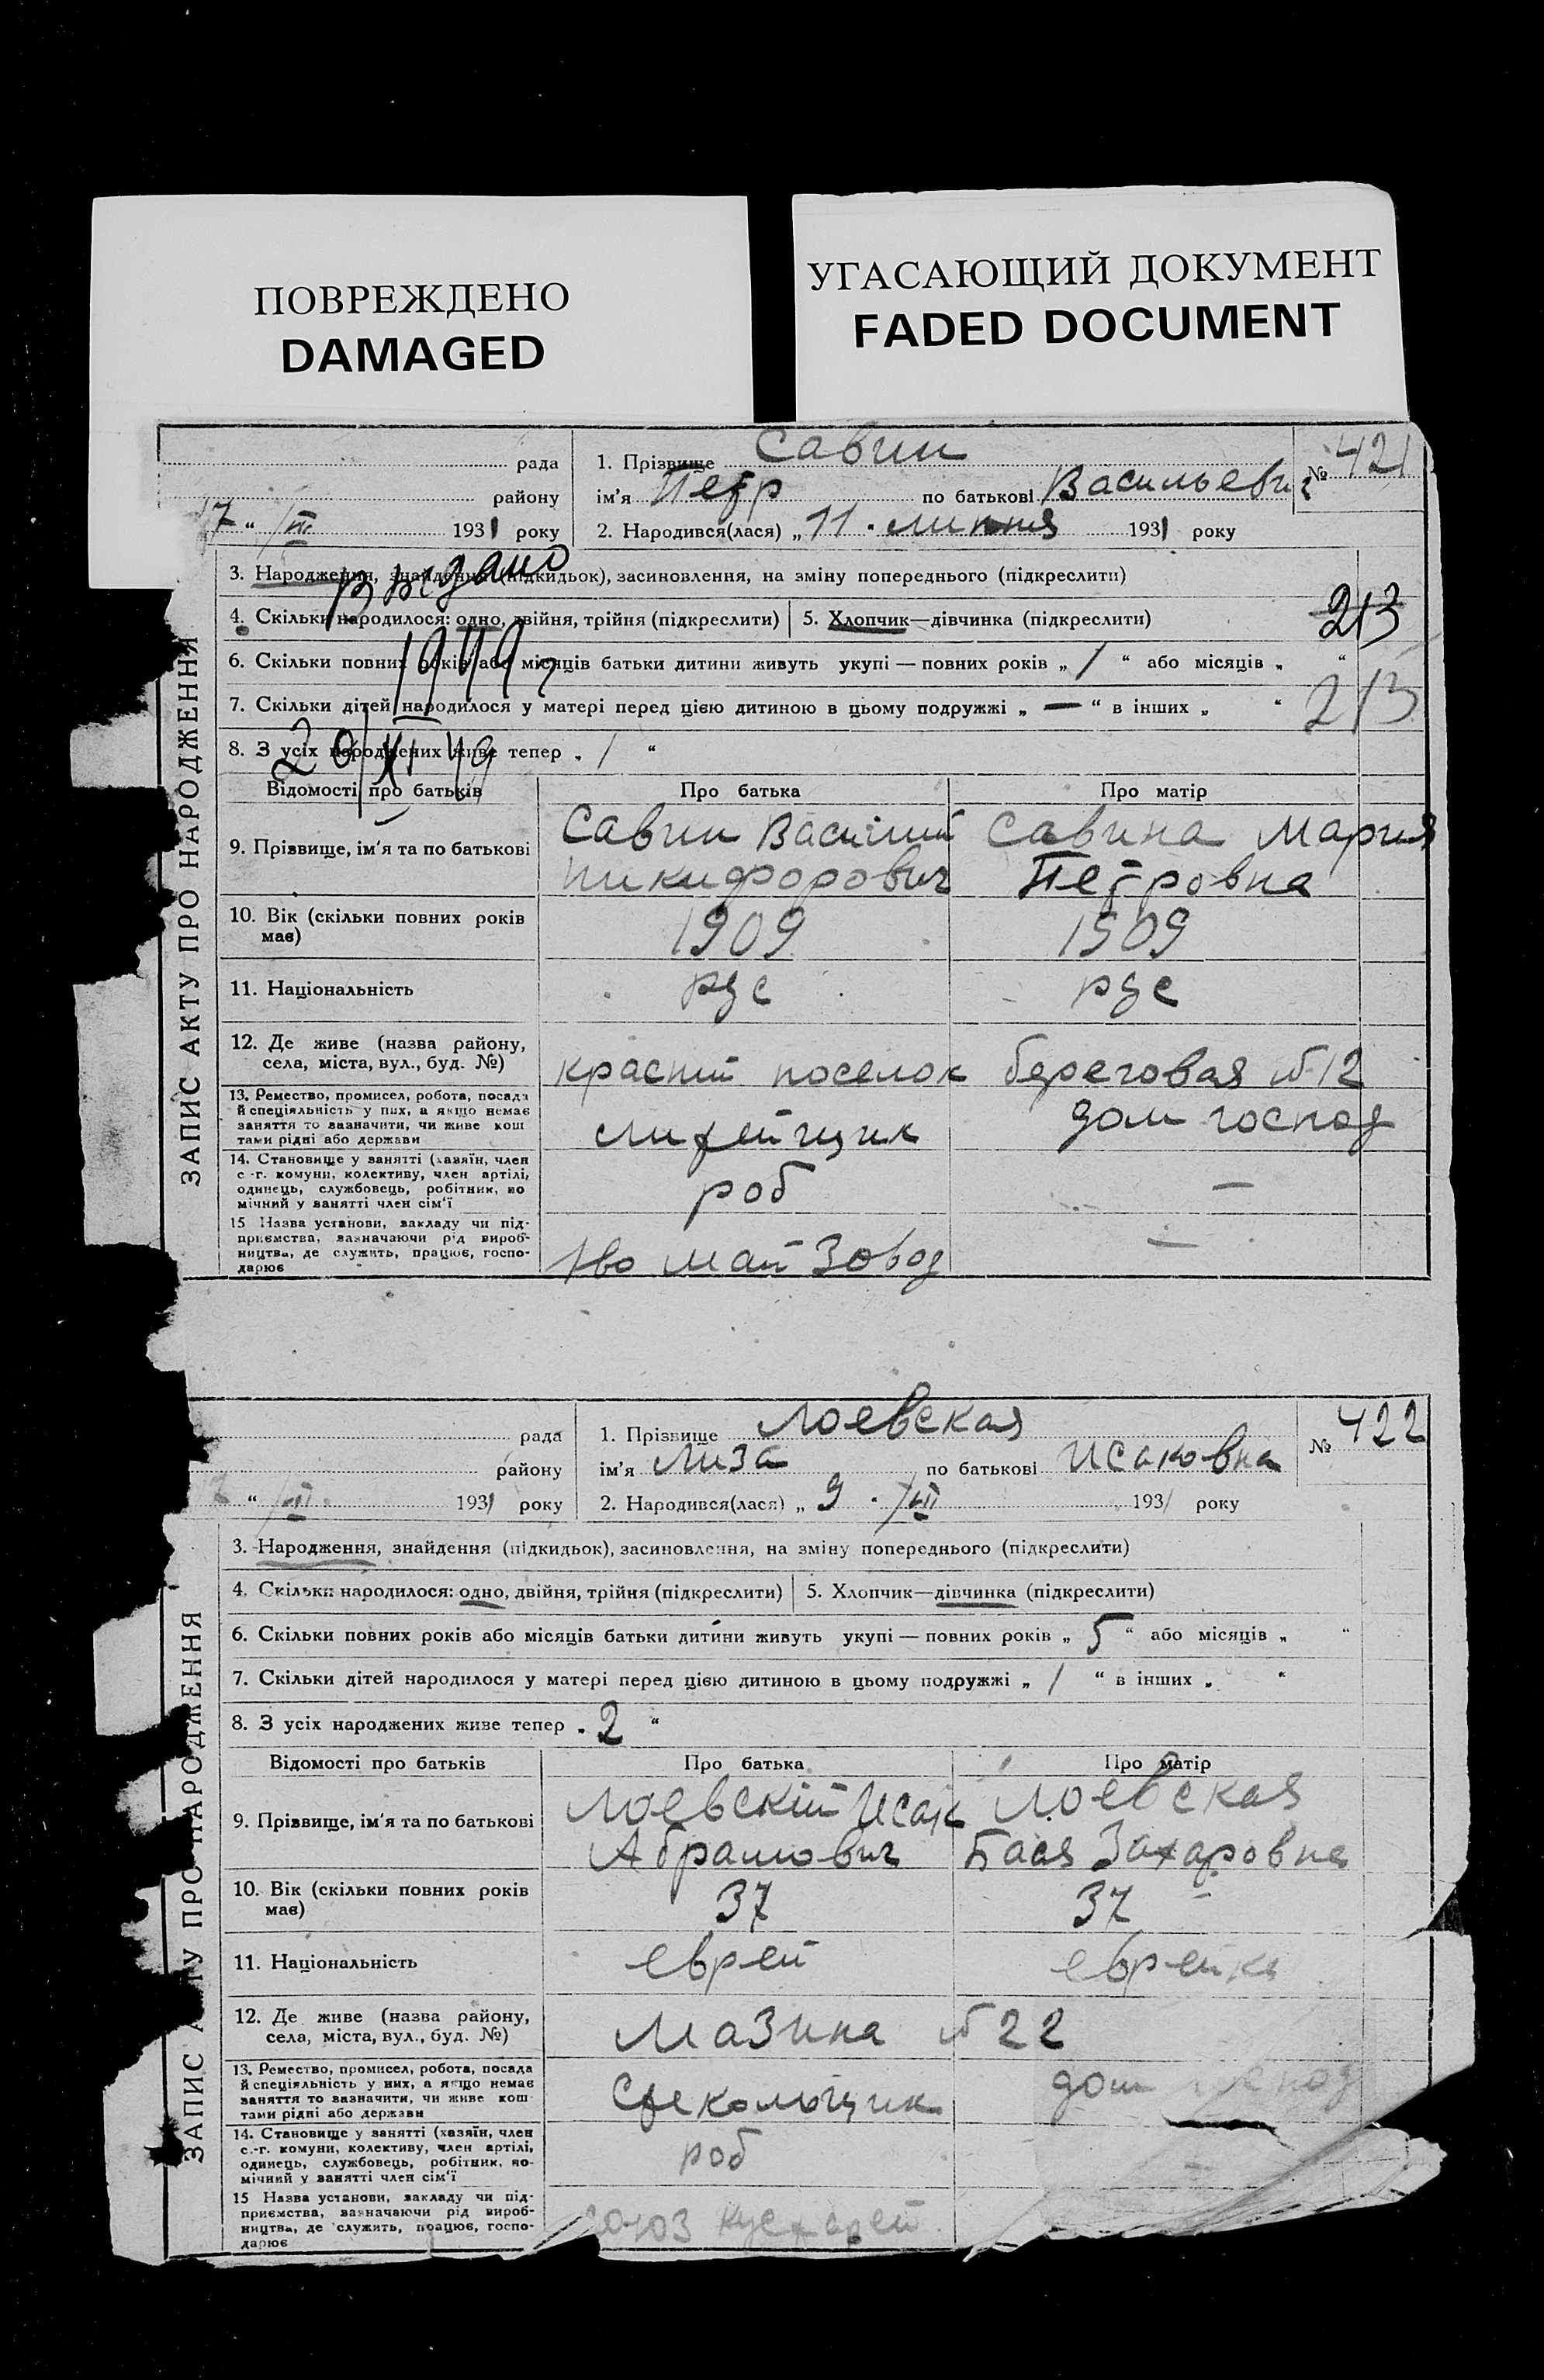 ПОВРЕЖДЕНО
DAMAGED
УГАСАЮЩИЙ ДОКУМЕНТ
FADED DOCUMENT
ЗАПИС АКТУ ПРО НАРОДЖЕННЯ
рада
району
17 " /VII 1931 року
1. Прізвище Савин
ім'я Петр по батькові Васильевич
2. Народився(лася) „ 11 . липня 1931 року
№ 421
3. Народження, знайдення (підкидьок), засиновлення, на зміну попереднього (підкреслити)
Выдано
4. Скільки народилося: одно, двійня, трійня (підкреслити) 5. Хлопчик—дівчинка (підкреслити)
213
6. Скільки повних років або місяців батьки дитини живуть укупі — повних років „ 1 " або місяців „ "
1949
7. Скільки дітей народилося у матері перед цією дитиною в цьому подружжі „ — " в інших „ "
213
8. З усіх народжених живе тепер „ 1 "
20/XI 49
Відомості про батьків Про батька Про матір
9. Прізвище, ім'я та по батькові Савин Василий Савина Мария
Никифорович Петровна
10. Вік (скільки повних років має) 1909 1909
11. Національність рус рус
12. Де живе (назва району, села, міста, вул., буд. №)
красний поселок береговая № 12
13. Ремество, промисел, робота, посада й спеціяльність у них, а якщо немає заняття то зазначити, чи живе кош тами рідні або держави
литейщик дом господ
14. Становище у занятті (хазяїн, член с.-г. комуни, колективу, член артілі, одинець, службовець, робітник, по мічний у занятті член сім'ї
роб —
15 Назва установи, закладу чи під- приємства, зазначаючи рід вироб- ництва, де служить, працює, госпо- дарює
1го май Завод —
ЗАПИС АКТУ ПРО НАРОДЖЕННЯ
рада
району
" /VII 1931 року
1. Прізвище Лоевская
ім'я Лиза по батькові Исаковна
2. Народився(лася) „ 9 . /VII 1931 року
№ 422
3. Народження, знайдення (підкидьок), засиновлення, на зміну попереднього (підкреслити)
4. Скільки народилося: одно, двійня, трійня (підкреслити) 5. Хлопчик—дівчинка (підкреслити)
6. Скільки повних років або місяців батьки дитини живуть укупі — повних років „ 5 " або місяців „ "
7. Скільки дітей народилося у матері перед цією дитиною в цьому подружжі „ 1 " в інших „ "
8. З усіх народжених живе тепер „ 2 "
Відомості про батьків Про батька Про матір
9. Прізвище, ім'я та по батькові Лоевский Исак Лоевская
Абрамович Бася Захаровна
10. Вік (скільки повних років має) 37 37
11. Національність еврей еврейка
12. Де живе (назва району, села, міста, вул., буд. №)
Мазина № 22
13. Ремество, промисел, робота, посада й спеціяльність у них, а якщо немає заняття то зазначити, чи живе кош тами рідні або держави
Стекольщик дом господ
14. Становище у занятті (хазяїн, член с.-г. комуни, колективу, член артілі, одинець, службовець, робітник, по- мічний у занятті член сім'ї
роб
15 Назва установи, закладу чи під- приємства, зазначаючи рід вироб- ництва, де служить, працює, госпо- дарює
союз кустарей